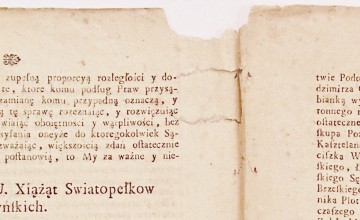 zupełną proporcyą rozległości y do-
te, ktore komu podług Praw przysą-
zamianę komu przypadną oznaczą, y
ą tę sprawę rozeznaiąc, y rozwięzuiąc
wiaiąc oboiętności y wątpliwości, bez
syłania oneyże do ktoregokolwiek Są-
zważaiąc, większością zdań ostatecznie
postanowią, to My za ważne y nie-
J. Xiążąt Swiatopełkow
yńskich.
twie Podo
dzimirza C
bianką w
tonuego n
ostateczne
skupa Pozn
Kasztelana
ciszka W
skiego, Ł
kiego Sę
Brzeskiego
nika Płoc
czaszego